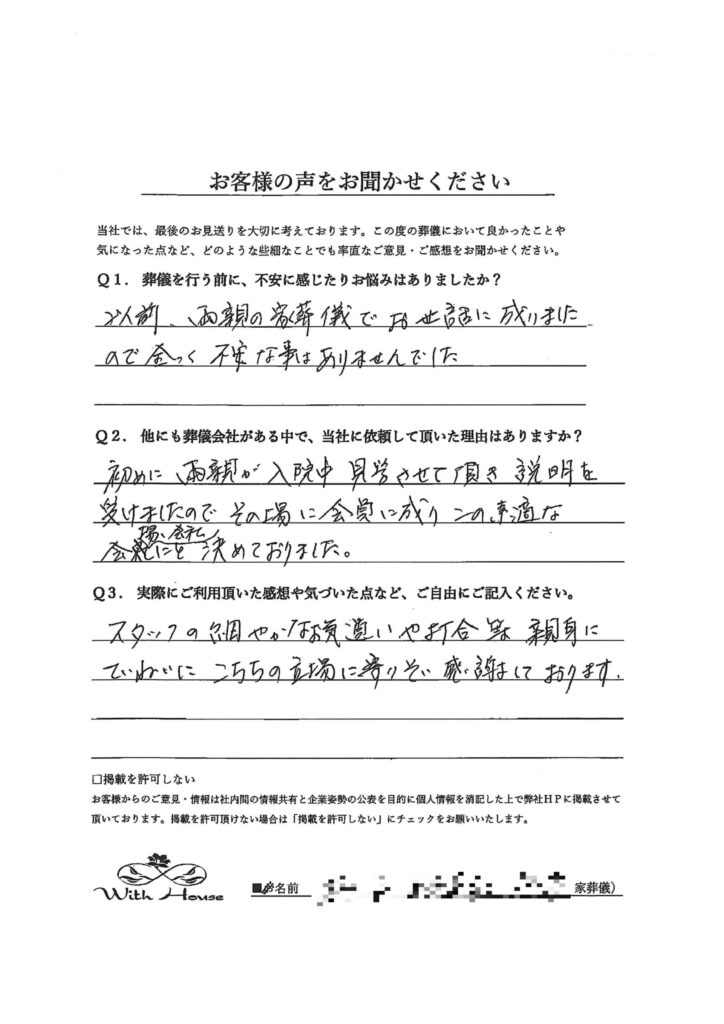 お客様の声をお聞かせください
当社では、最後のお見送りを大切に考えております。この度の葬儀において良かったことや
気になった点など、どのような些細なことでも率直なご意見・ご感想をお聞かせください。
Q1. 葬儀を行う前に、不安に感じたりお悩みはありましたか？
以前、両親の家葬儀でお世話に成りました
ので全っく不安な事はありませんでした
Q2. 他にも葬儀会社がある中で、当社に依頼して頂いた理由はありますか？
初めに、両親が入院中見学させて頂き説明を
受けましたのでその場に会員に成りこの素適な
会社
にと決めておりました。
Q3. 実際にご利用頂いた感想や気づいた点など、ご自由にご記入ください。
スタッフの細やかなお気遣いや打合等親身に
ていねいにこちらの立場に寄りそい感謝して おります.
□掲載を許可しない
お客様からのご意見・情報は社内間の情報共有と企業姿勢の公表を目的に個人情報を消記した上で弊社HPに掲載させて
頂いております。掲載を許可頂けない場合は「掲載を許可しない」にチェックをお願いいたします。
With House
名前 家葬儀）